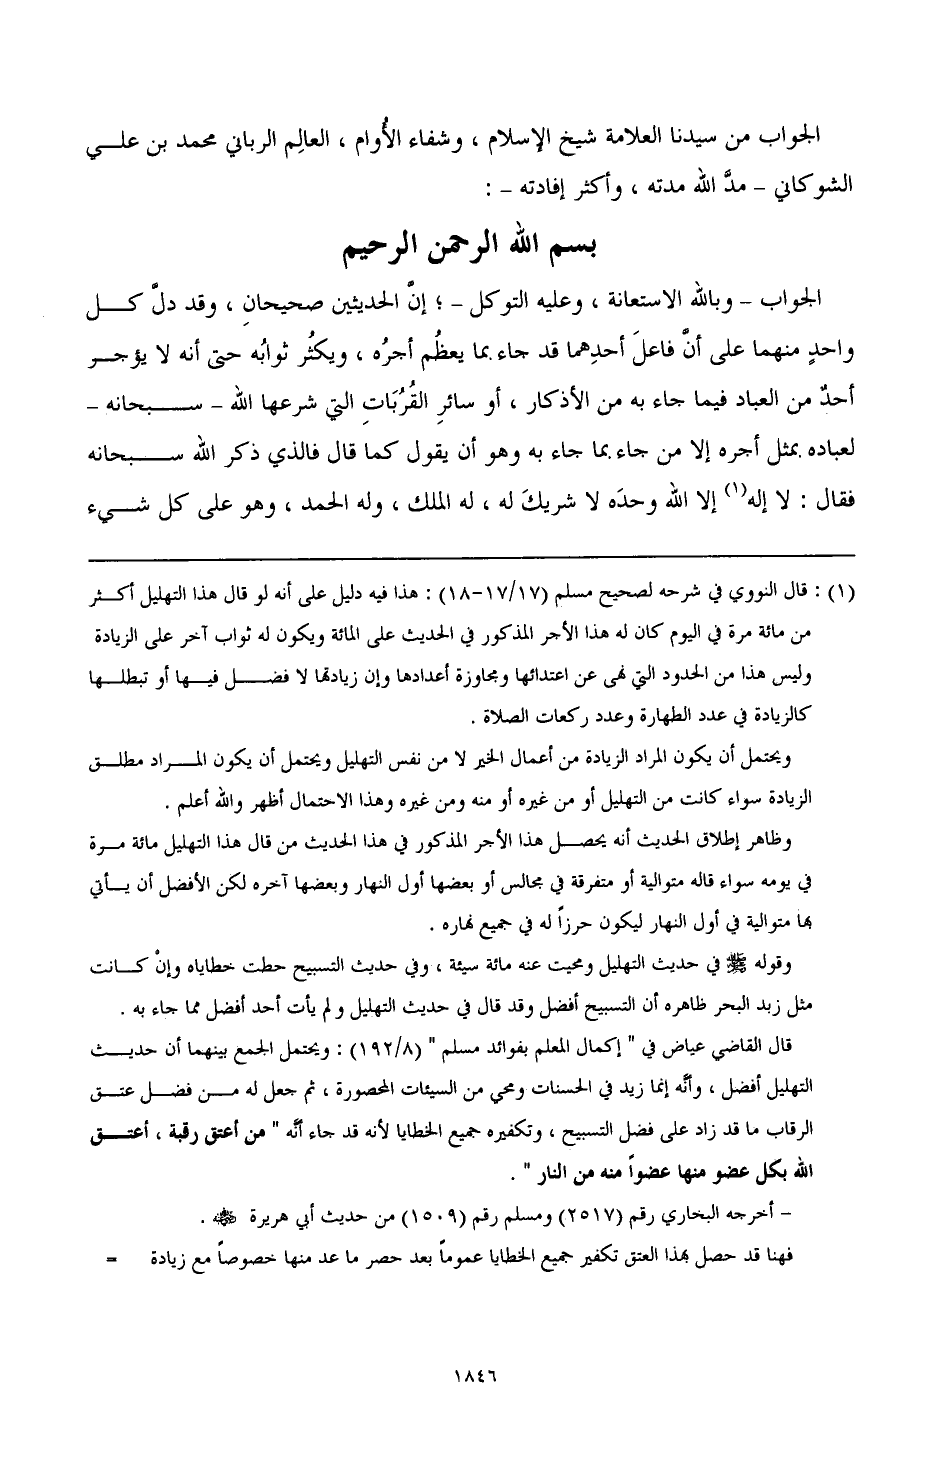 الجواب من سيدنا العلامة شيخ الإسلام ، وشفاء الأُوام ، العالِم الرباني محمد بن علي
الشوكاني – مدَّ الله مدته ، وأكثر إفادته – :
بسم الله الرحمن الرحيم
الجواب – وبالله الاستعانة ، وعليه التوكل – ؛ إنَّ الحديثين صحيحانِ ، وقد دلَّ كل
واحدٍ منهما على أنَّ فاعلَ أحدِهما قد جاء بما يعظُم أجرُه ، ويكثُر ثوابُه حتى أنه لا يؤجر
أحدٌ من العباد فيما جاء به من الأذكار ، أو سائرِ القُرُبَاتِ التي شرعها الله – سبحانه –
لعباده بمثل أجره إلا من جاء بما جاء به وهو أن يقول كما قال فالذي ذكر الله سبحانه
فقال : لا إله(١) إلا الله وحدَه لا شريكَ له ، له الملك ، وله الحمد ، وهو على كل شيء
(١) : قال النووي في شرحه لصحيح مسلم (١٧/١٧–١٨) : هذا فيه دليل على أنه لو قال هذا التهليل أكثر
من مائة مرة في اليوم كان له هذا الأجر المذكور في الحديث على المائة ويكون له ثواب آخر على الزيادة
وليس هذا من الحدود التي نهى عن اعتدائها ومجاوزة أعدادها وإن زيادتها لا فضل فيها أو تبطلها
كالزيادة في عدد الطهارة وعدد ركعات الصلاة .
ويحتمل أن يكون المراد الزيادة من أعمال الخير لا من نفس التهليل ويحتمل أن يكون المراد مطلق
الزيادة سواء كانت من التهليل أو من غيره أو منه ومن غيره وهذا الاحتمال أظهر والله أعلم .
وظاهر إطلاق الحديث أنه يحصل هذا الأجر المذكور في هذا الحديث من قال هذا التهليل مائة مرة
في يومه سواء قاله متوالية أو متفرقة في مجالس أو بعضها أول النهار وبعضها آخره لكن الأفضل أن يأتي
بها متوالية في أول النهار ليكون حرزاً له في جميع نهاره .
وقوله ﷺ في حديث التهليل ومحيت عنه مائة سيئة ، وفي حديث التسبيح حطت خطاياه وإنْ كانت
مثل زبد البحر ظاهره أن التسبيح أفضل وقد قال في حديث التهليل ولم يأت أحد أفضل مما جاء به .
قال القاضي عياض في " إكمال المعلم بفوائد مسلم " (١٩٢/٨) : ويحتمل الجمع بينهما أن حديث
التهليل أفضل ، وأنَّه إنما زيد في الحسنات ومحي من السيئات المحصورة ، ثم جعل له من فضل عتق
الرقاب ما قد زاد على فضل التسبيح ، وتكفيره جميع الخطايا لأنه قد جاء أنَّه " من أعتق رقبة ، أعتق
الله بكل عضو منها عضواً منه من النار " .
– أخرجه البخاري رقم (٢٥١٧) ومسلم رقم (١٥٠٩) من حديث أبي هريرة ﷺ .
فهنا قد حصل بهذا العتق تكفير جميع الخطايا عموماً بعد حصر ما عد منها خصوصاً مع زيادة =
١٨٤٦